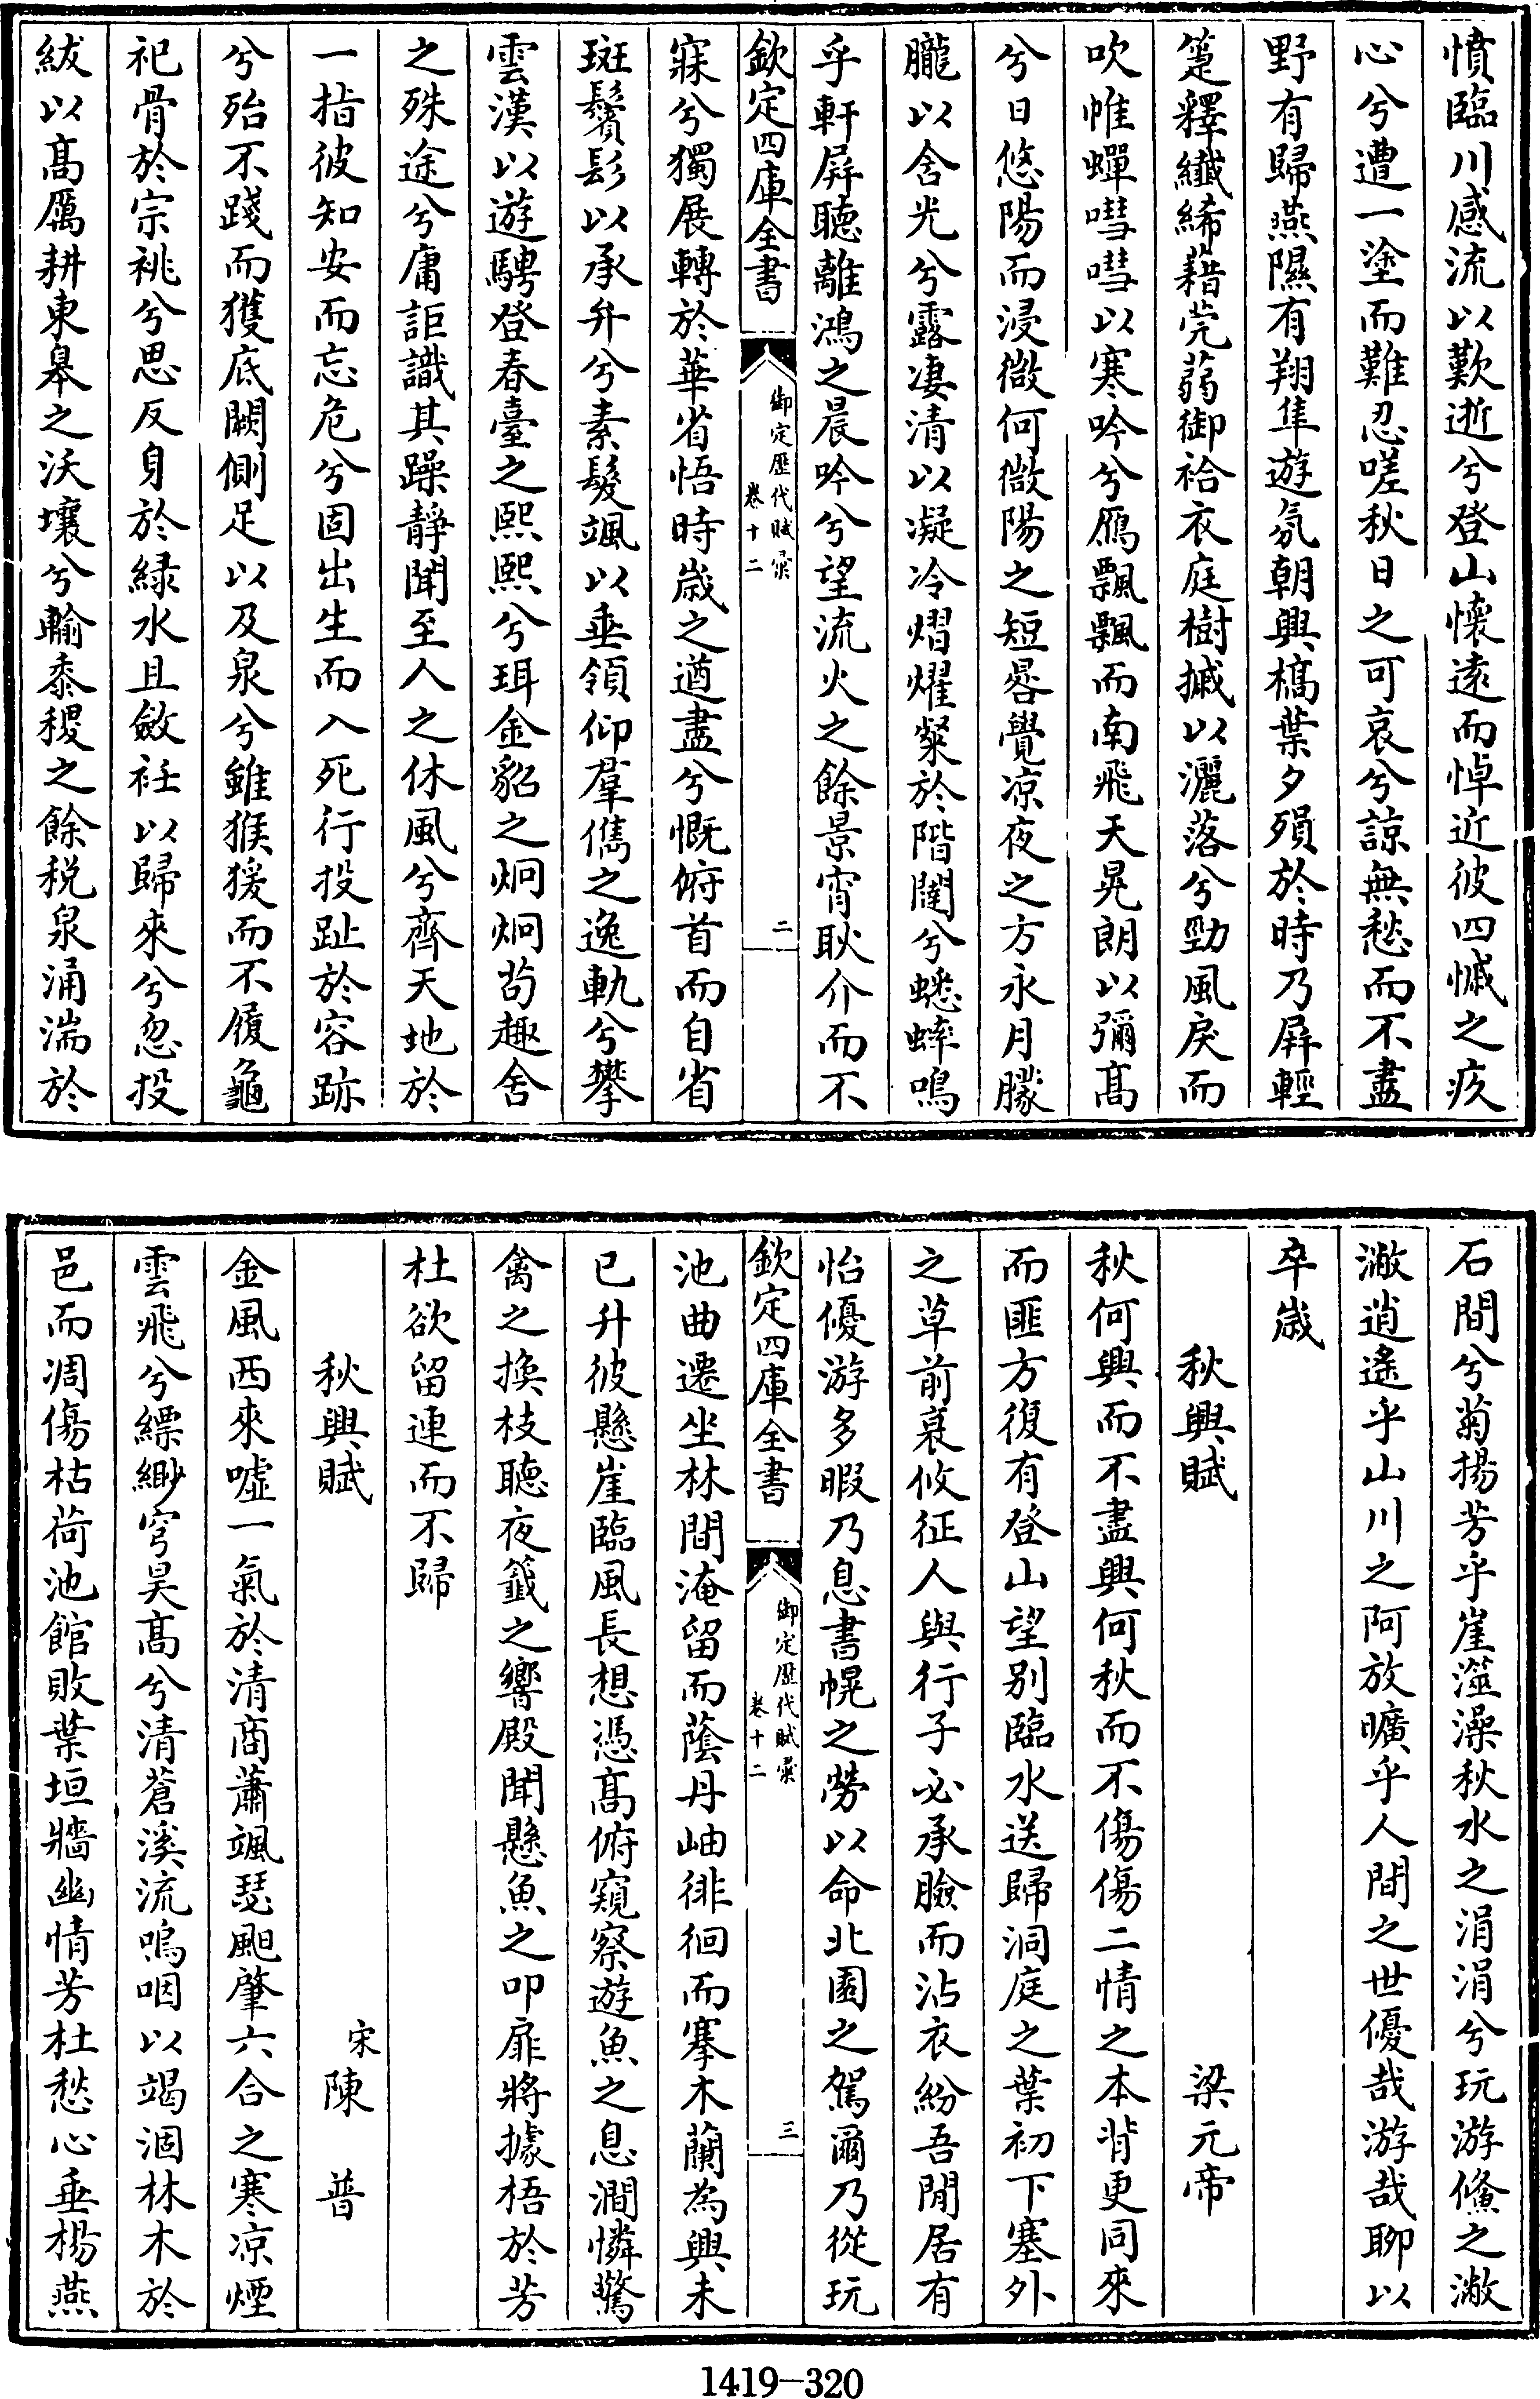 憤臨川感流以歎逝兮登山懷遠而悼近彼四慽之疚
心兮遭一塗而難忍嗟秋日之可哀兮諒無愁而不盡
野有歸燕隰有翔隼遊氛朝興槁葉夕殞於時乃屏輕
箑釋纖絺藉莞蒻御袷衣庭樹摵以灑落兮勁風戾而
吹帷蟬嘒嘒以寒吟兮鴈飄飄而南飛天晃朗以彌髙
兮日悠陽而浸微何微陽之短晷覺凉夜之方永月朦
朧以含光兮露淒清以凝冷熠燿粲於階闥兮蟋蟀鳴
乎軒屏聽離鴻之晨吟兮望流火之餘景宵耿介而不
欽定四庫全書
御定歷代賦彙
卷十二
二
寐兮獨展轉於華省悟時歳之遒盡兮慨俯首而自省
斑鬢髟以承弁兮素髮颯以垂領仰羣儁之逸軌兮攀
雲漢以遊騁登春臺之熙熙兮珥金貂之炯炯苟趣舍
之殊途兮庸詎識其躁靜聞至人之休風兮齊天地於
一指彼知安而忘危兮固出生而入死行投趾於容跡
兮殆不踐而獲底闕側足以及泉兮雖猴猨而不履龜
祀骨於宗祧兮思反身於緑水且斂衽以歸來兮忽投
紱以髙厲耕東臯之沃壤兮輸黍稷之餘税泉涌湍於
石間兮菊揚芳乎崖澨澡秋水之涓涓兮玩游鯈之潎
潎逍遙乎山川之阿放曠乎人間之世優哉游哉聊以
卒歳
秋興賦 梁元帝
秋何興而不盡興何秋而不傷傷二情之本背更同來
而匪方復有登山望别臨水送歸洞庭之葉初下塞外
之草前衰攸征人與行子必承臉而沾衣紛吾閒居有
怡優游多暇乃息書幌之勞以命北園之駕爾乃從玩
欽定四庫全書
御定歷代賦彙
卷十二
三
池曲遷坐林間淹留而蔭丹岫徘徊而搴木蘭為興未
已升彼懸崖臨風長想憑髙俯窺察遊魚之息澗憐驚
禽之換枝聽夜籤之響殿聞懸魚之叩扉將據梧於芳
杜欲留連而不歸
秋興賦 宋陳普
金風西來噓一氣於清商蕭颯瑟颸肇六合之寒凉煙
雲飛兮縹緲穹昊髙兮清蒼溪流嗚咽以竭涸林木於
邑而凋傷枯荷池館敗葉垣牆幽情芳杜愁心垂楊燕
1419-320